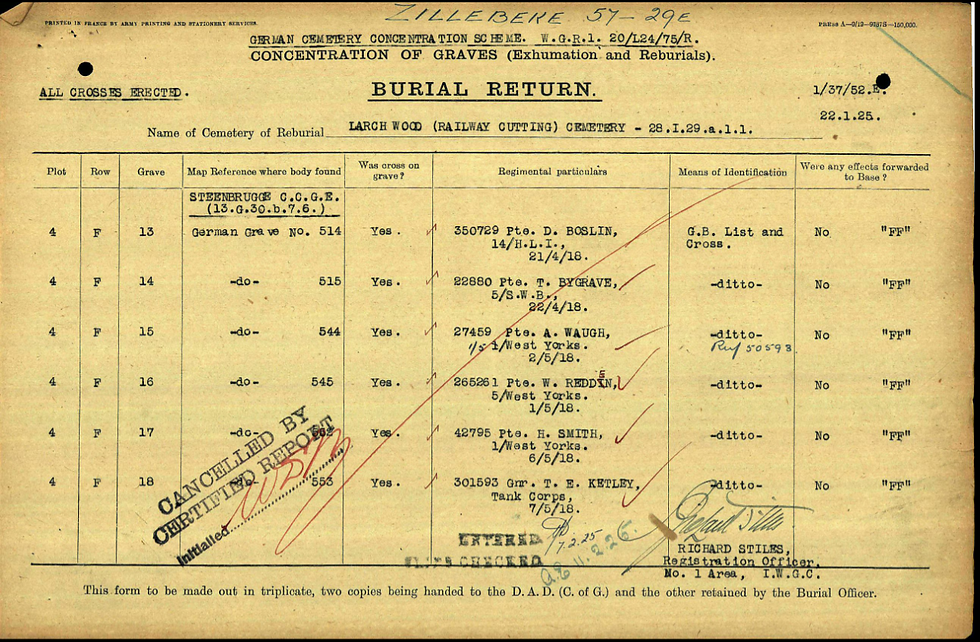 ZILLEBEKE 57-29E
PRINTED IN FRANCE BY ARMY PRINTING AND STATIONERY SERVICES.
PRESS A-9/12-90375-150,000.
GERMAN CEMETERY CONCENTRATION SCHEME. W.G.R.1. 20/L24/75/R.
CONCENTRATION OF GRAVES (Exhumation and Reburials).
ALL CROSSES ERECTED.
BURIAL RETURN.
1/37/52.E.
22.1.25.
Name of Cemetery of Reburial LARCH WOOD (RAILWAY CUTTING) CEMETERY - 28.I.29.a.1.1.
Plot Row Grave Map Reference where body found Was cross on grave? Regimental particulars Means of Identification Were any effects forwarded to Base?
STEENBRUGGE C.C.G.E.
(13.G.30.b.7.6.)
4 F 13 German Grave No. 514 Yes. 350729 Pte. D. BOSLIN, G.B. List and No "FF"
14/H.L.I., Cross.
21/4/18.
4 F 14 -do- 515 Yes. 22880 Pte. T. BYGRAVE, -ditto- No "FF"
5/S.W.B.,
22/4/18.
4 F 15 -do- 544 Yes. 27459 Pte. A. WAUGH, -ditto- No "FF"
1/5 1/West Yorks. Ref 50593
2/5/18.
4 F 16 -do- 545 Yes. 265261 Pte. W. REDDIN, -ditto- No "FF"
5/West Yorks.
1/5/18.
4 F 17 -do- Yes. 42795 Pte. H. SMITH, -ditto- No "FF"
1/West Yorks.
6/5/18.
4 F 18 553 Yes. 301593 Gnr. T. E. KETLEY, -ditto- No "FF"
Tank Corps,
7/5/18.
CANCELLED BY
CERTIFIED REPORT
Initialled
ENTERED 7.2.25
CHECKED
RICHARD STILES,
Registration Officer,
No. 1 Area, I.W.G.C.
This form to be made out in triplicate, two copies being handed to the D.A.D. (C. of G.) and the other retained by the Burial Officer.